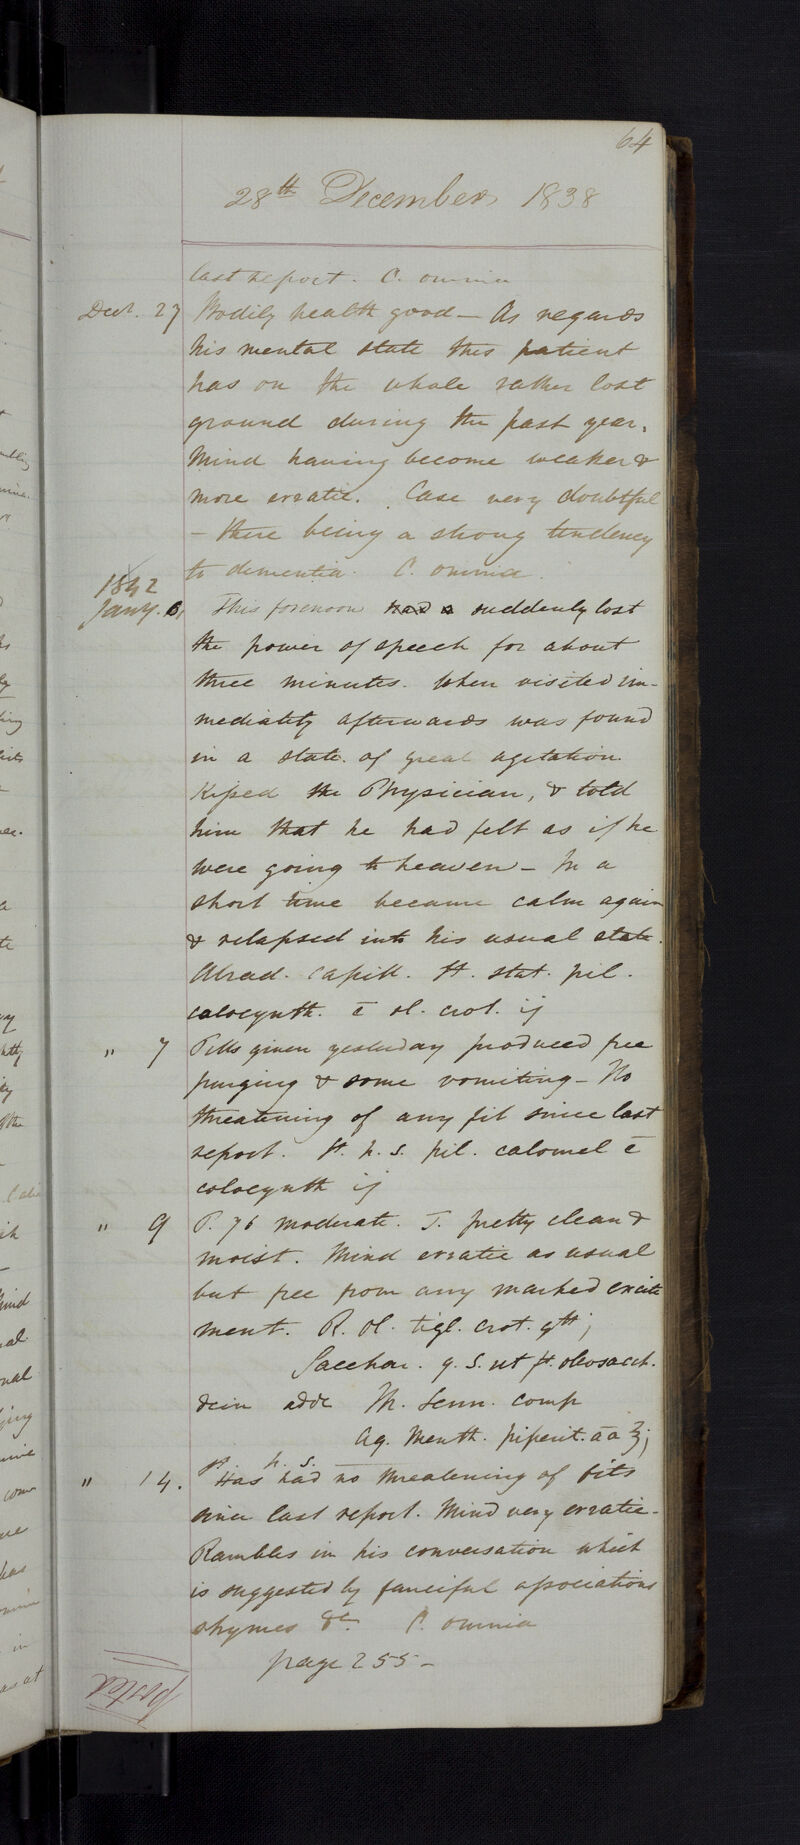 64
28th December 1838
last report. C. omnia
Decr. 27 Bodily health good — As regards
his mental state this patient
has on the whole rather lost
ground during the past year,
Mind having become weaker &
more erratic. Case very doubtful
— there being a strong tendency
to dementia. C. omnia.
1842
Jany. 6, This forenoon had a suddenly lost
the power of speech for about
three minutes. When visited im-
mediately afterwards was found
in a state of great agitation.
Kissed the Physician, & told
him that he had felt as if he
were going to heaven — In a
short time became calm again
& relapsed into his usual state.
Abrad. capill. St. stat. pil.
colocynth. c̄ ol. crot. ij
" 7 Pills given yesterday produced free
purging & some vomiting — No
threatening of any fit since last
report. St. h. s. pil. calomel c̄
colocynth ij
" 9 P. 76 moderate. T. pretty clean &
moist. Mind erratic as usual
but free from any marked excite
ment. R. Ol. tigl. crot. gtt j
Sacchar. q. s. ut ft. oleosacch.
dein adde M. Senn. comp
Aq. Menth. piperit. āā ℥j
St. h. s.
" 14. Has had no threatening of fits
since last report. Mind very erratic —
Rambles in his conversation which
is suggested by fanciful associations
rhymes &c. C. omnia
page 255 —
posted